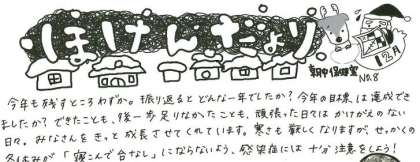 ほけんだより
12月
朝中保健室
NO.8
今年も残すところわずか。振り返るとどんな一年でしたか？今年の目標は達成でき
ましたか？できたことも、後一歩足りなかったことも、頑張った日々はかけがえのない
日々。みなさんをきっと成長させてくれています。寒さも厳しくなりますが、せっかくの
冬休みが「寝こんで台なし」にならないよう、感染症には十分注意をしましょう！